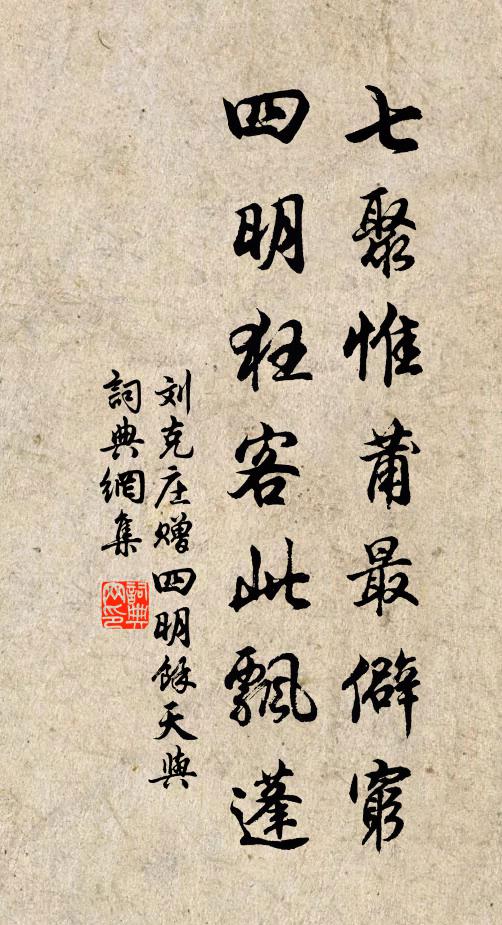 七聚惟莆最僻窮
四明狂客此飄蓬
刘克庄赠四明馀天與
詞典網集
詞典
网印